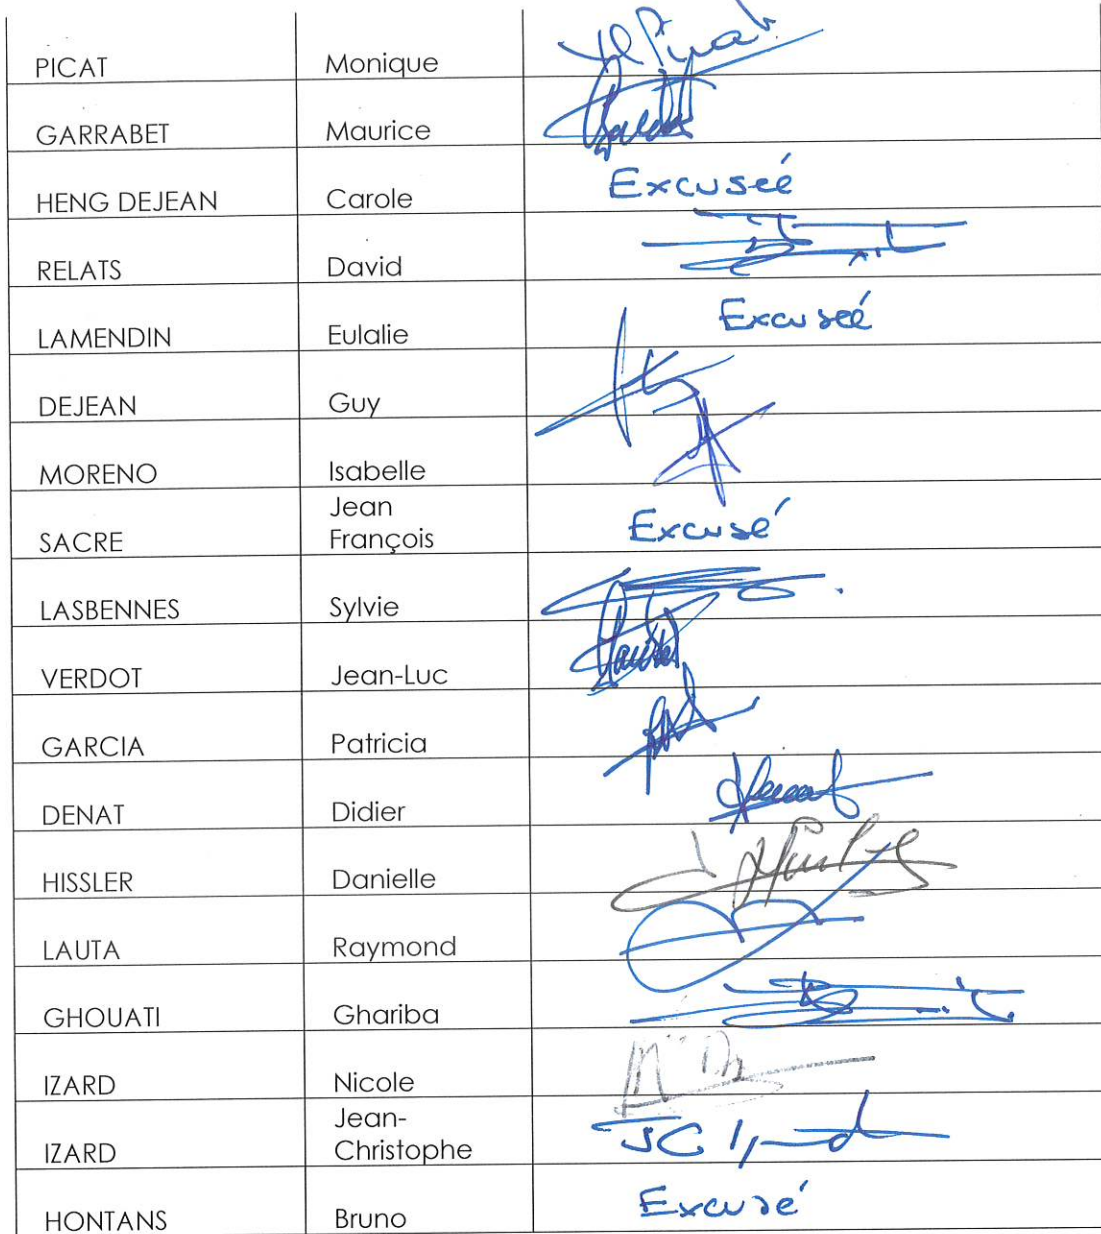 PICAT Monique
GARRABET Maurice
HENG DEJEAN Carole Excuseé
RELATS David
LAMENDIN Eulalie Excuseé
DEJEAN Guy
MORENO Isabelle
SACRE Jean François Excusé
LASBENNES Sylvie
VERDOT Jean-Luc
GARCIA Patricia
DENAT Didier
HISSLER Danielle
LAUTA Raymond
GHOUATI Ghariba
IZARD Nicole
IZARD Jean-Christophe
HONTANS Bruno Excusé